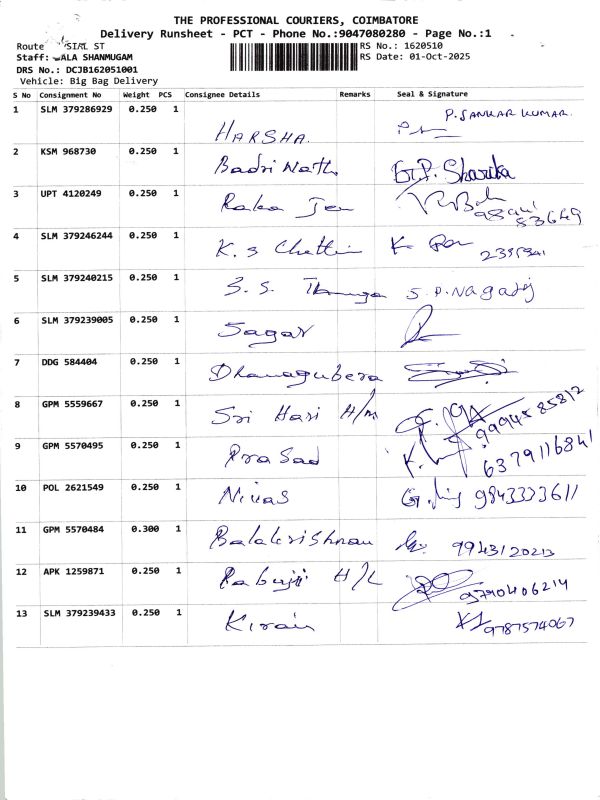 THE PROFESSIONAL COURIERS, COIMBATORE
Delivery Runsheet - PCT - Phone No.:9047080280 - Page No.:1
Route SIAL ST RS No.: 1620510
Staff: ALA SHANMUGAM RS Date: 01-Oct-2025
DRS No.: DCJB162051001
Vehicle: Big Bag Delivery
S No Consignment No Weight PCS Consignee Details Remarks Seal & Signature
1 SLM 379286929 0.250 1 HARSHA. P. SANKAR KUMAR.
2 KSM 968730 0.250 1 Badri Nath G.P. Sharika
3 UPT 4120249 0.250 1 Raka Jen
4 SLM 379246244 0.250 1 K. S Chettin
5 SLM 379240215 0.250 1 S. S. S. P. Nagaraj
6 SLM 379239005 0.250 1 Sagar
7 DDG 584404 0.250 1 Dhanagubera
8 GPM 5559667 0.250 1 Sri Hari H/M 9994585812
9 GPM 5570495 0.250 1 Prasad 6379116841
10 POL 2621549 0.250 1 Nivas 9843333611
11 GPM 5570484 0.300 1 Balakrishnan 9943120213
12 APK 1259871 0.250 1 Rabujii H/L 9790406214
13 SLM 379239433 0.250 1 Kiran 9787574067